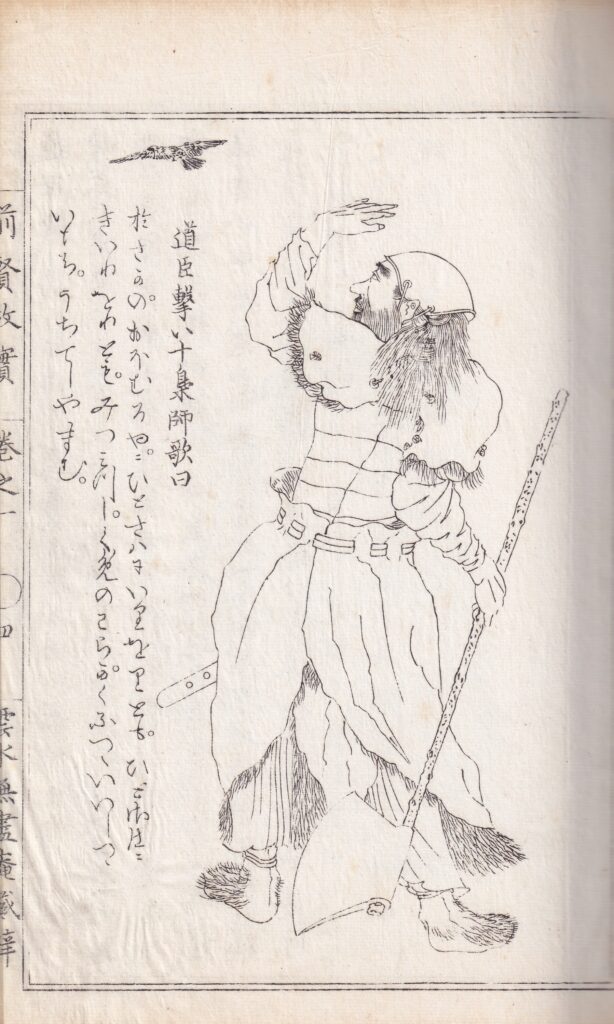 道臣撃八十梟師歌曰
於さかの。おほむろや。に。ひとさハにいりをりとも。ひとさはに
きいりをりとも。みつみつし。くめのこらが。くぶつゝいいしつゝ
いもち。うちてしやまむ。
前賢故實 巻之一 四 雲水無盡庵藏梓